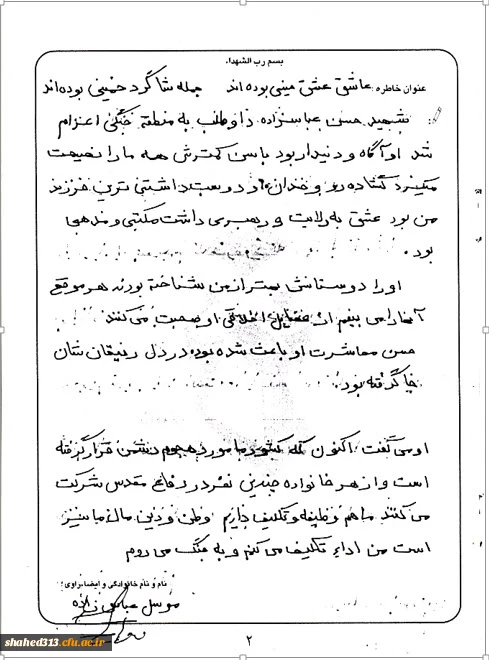 بسم رب الشهداء
عنوان خاطره: عاشق عشق مینی بوده اند جمله شاگرد خمینی بوده اند
شهید حسن عباسزاده داوطلب به منطقه جنگی اعزام
شد او آگاه و دنیدار بود با سن کمترش همه ما را نصیحت
میکرد گشاده رو و خندان و دوست داشتنی ترین فرزند
من بود عشق به ولایت و رهبری داشت مکتبی و مذهبی
بود.
او را دوستانش بهتر از من شناخته بودند هر موقع
آنها را می بینم از فضایل اخلاقی او صحبت می کنند
حسن معاشرت او باعث شده بود در دل رفیقان شان
جا گرفته بود.
او می گفت اکنون که کشور ما مورد هجوم دشمن قرار گرفته
است و از هر خانواده چندین نفر در دفاع مقدس شرکت
می کنند ما هم وظیفه و تکلیف داریم وطن و دین مال ما نیز
است من اداء تکلیف می کنم و به جنگ می روم
نام و نام خانوادگی و امضاء راوی:
موسل عباس زاده
۲
shahed313.cfu.ac.ir